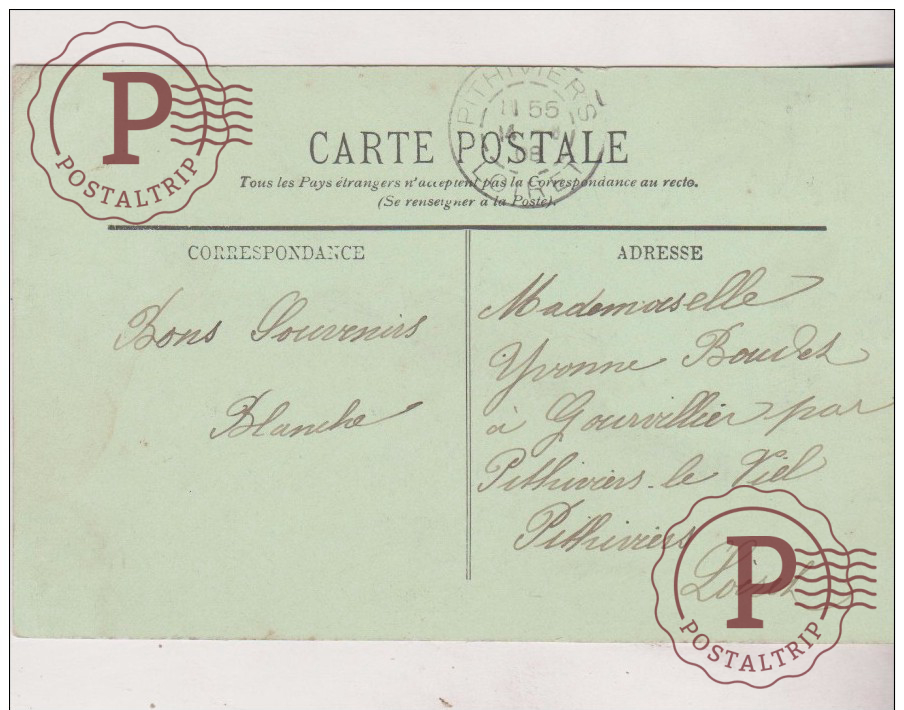 P
POSTALTRIP
PITHIVIERS
11 55
14
08
LOIRET
CARTE POSTALE
Tous les Pays étrangers n'acceptent pas la Correspondance au recto.
(Se renseigner à la Poste).
CORRESPONDANCE
Bons Souvenirs
Blanche
ADRESSE
Mademoiselle
Yvonne Boudet
à Gourvillier par
Pithiviers-le Viel
Pithiviers
Loiret
P
POSTALTRIP